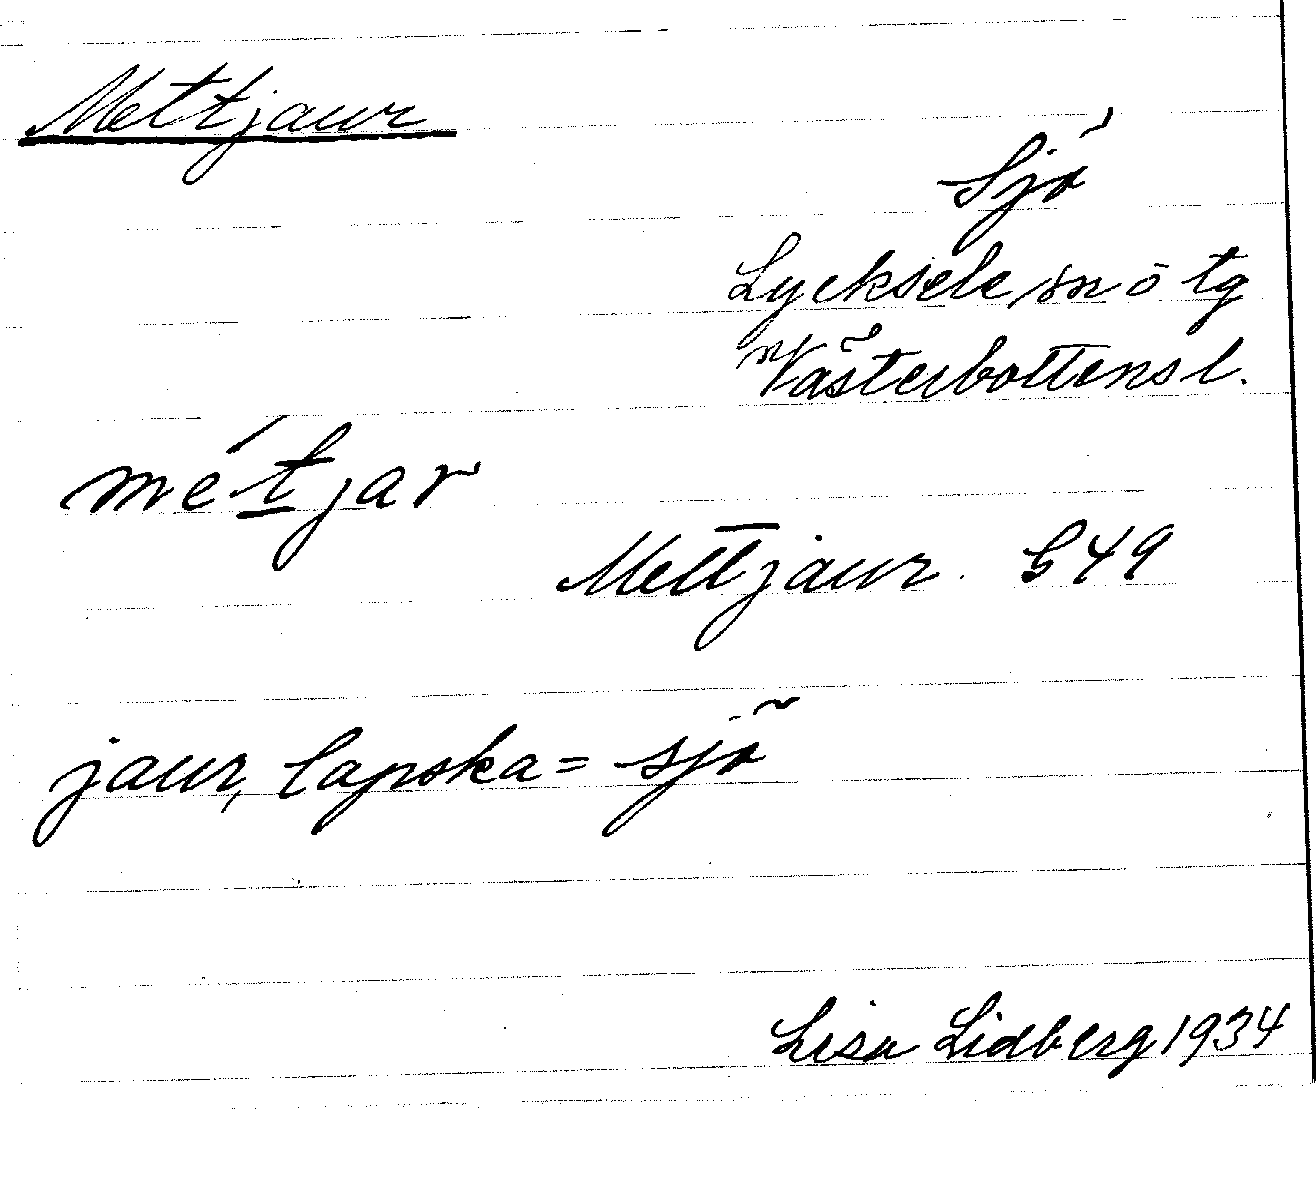 Mettjaur
Sjö
Lycksele sn o tg
Västerbottens l.
me´tjar
Mettjaur. S49
jaur, lapska = sjö
Lisa Lidberg 1934